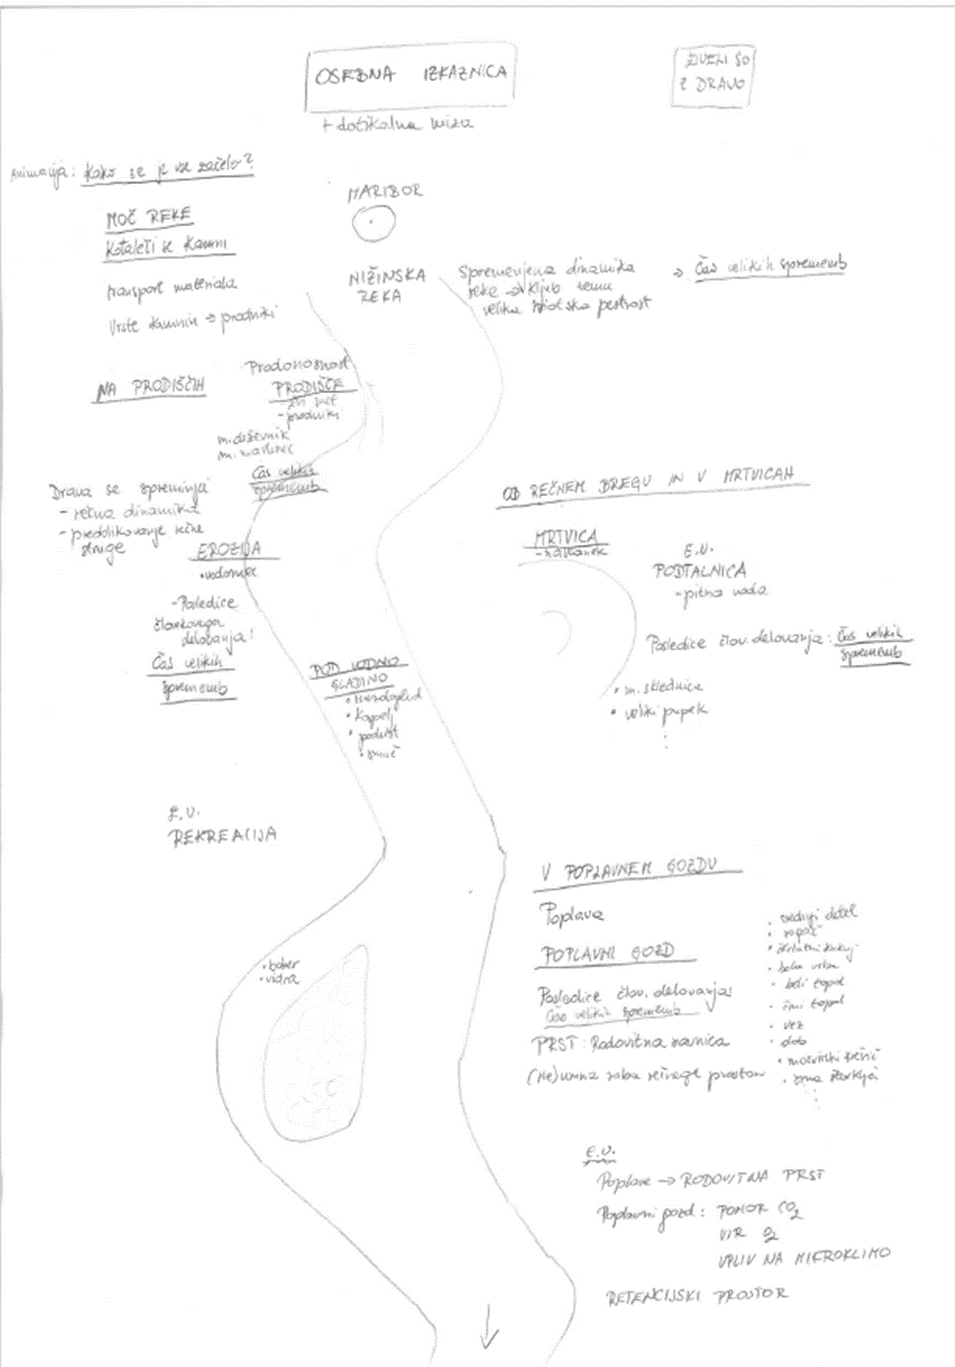 OSEBNA IZKAZNICA
+ dotikalna miza
ŽIVELI SO
Z DRAVO
Animacija: Kako se je vse začelo?
MOČ REKE
Kotaleči se kamni
transport materiala
Vrste kamnin → prodniki
MARIBOR
NIŽINSKA
REKA
Spremenjena dinamika
reke → kljub temu
velika biološka pestrost
→ Čas velikih sprememb
NA PRODIŠČIH
Prodonosnost
PRODIŠČE
- prodniki
m. deževnik
m. martinec
Čas velikih
sprememb
Drava se spreminja
- rečna dinamika
- preoblikovanje rečne
struge
EROZIJA
• vodomec
- Posledice
človekovega
delovanja:
Čas velikih
sprememb
POD VODNO
GLADINO
• Kapelj
• podust
• smuč
OB REČNEM BREGU IN V MRTVICAH
MRTVICA
- nastanek
E.U.
PODTALNICA
- pitna voda
Posledice člov. delovanja: Čas velikih
sprememb
• m. sklednica
• veliki pupek
E.U.
REKREACIJA
• bober
• vidra
V POPLAVNEM GOZDU
Poplava
POPLAVNI GOZD
Posledice člov. delovanja:
Čas velikih sprememb
PRST: Rodovitna ravnica
(Ne)umna raba rečnega prostora
• srednji detel
• rogač
• škrlatni kukuj
• bela vrba
• beli topol
• črni topol
• vez
• dob
• močvirski krešič
• črna štorklja
E.U.
Poplave → RODOVITNA PRST
Poplavni gozd: PONOR CO2
VIR O2
VPLIV NA MIKROKLIMO
RETENCIJSKI PROSTOR